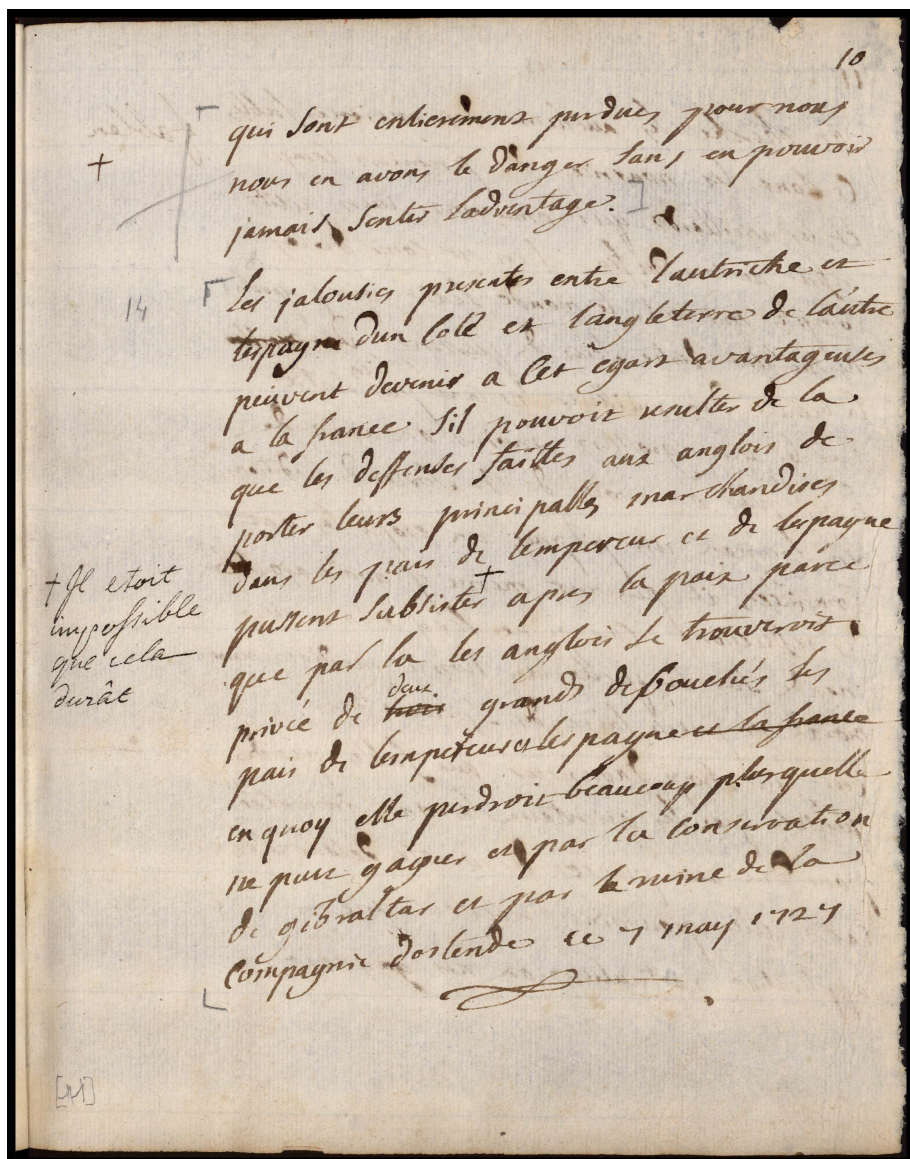 10
qui sont entierement perdues pour nous
+ nous en avons le danger sans en pouvoir
jamais sentir ladventage.
14 Les jalousies presentes entre lautriche et
lespagne dun coté et langleterre de lautre
peuvent devenir a cet egart avantageuses
a la france sil pouvoit resulter de la
que les deffenses faittes aux anglois de
porter leurs principalles marchandises
dans les pais de lempereur et de lespagne
pussent subsister + apres la paix parce
que par la les anglois se trouveroit
privée de trois deux grands debouchés les
pais de lempereur et lespagne et la france
en quoy elle perdroit beaucoup plus quelle
ne peut gagner et par la conservation
de gibraltar et par la ruine de la
compagnie dostende ce 7 may 1727
+ Il etoit
impossible
que cela
durât